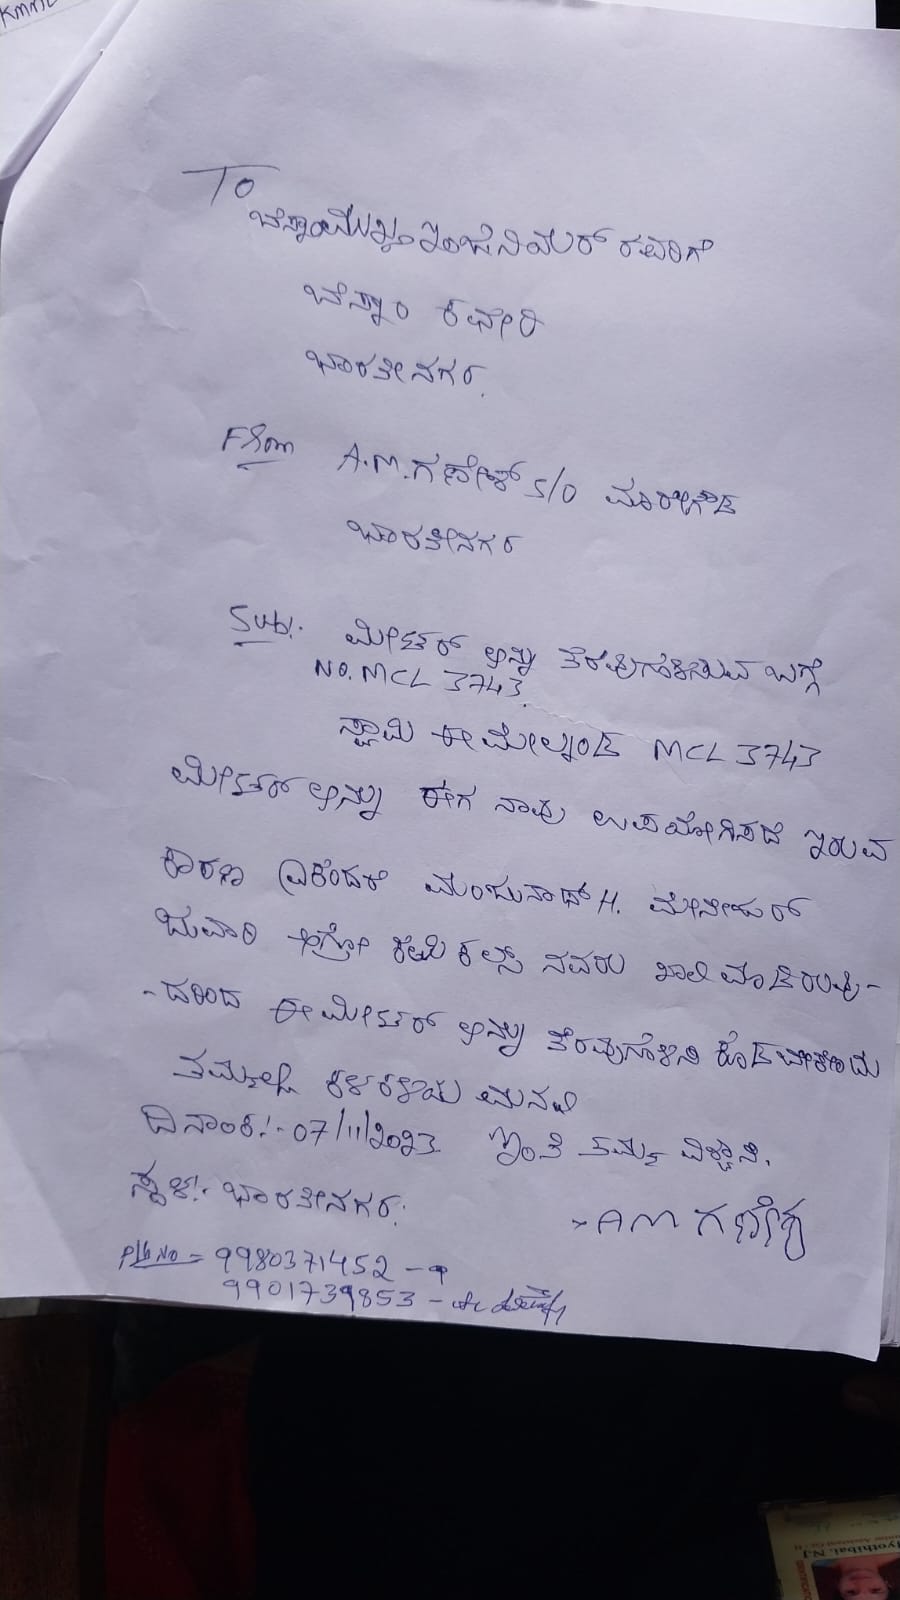 KMML
To
ಬೆಸ್ಕಾಂಮುಖ್ಯ ಇಂಜಿನಿಯರ್ ರವರಿಗೆ
ಬೆಸ್ಕಾಂ ಕಛೇರಿ
ಭಾರತೀನಗರ.
From A.M.ಗಣೇಶ್ S/O ಮಾರೇಗೌಡ
ಭಾರತೀನಗರ
Sub:- ಮೀಟರ್ ಅನ್ನು ತೆರವುಗೊಳಿಸುವ ಬಗ್ಗೆ
NO. MCL 3743.
ಸ್ವಾಮಿ ಈ ಮೇಲ್ಕಂಡ MCL 3743
ಮೀಟರ್ ಅನ್ನು ಈಗ ನಾವು ಉಪಯೋಗಿಸದೆ ಇರುವ
ಕಾರಣ ಏಕೆಂದರೆ ಮಂಜುನಾಥ್ H. ಮೇನೇಜರ್
ಜುವಾರಿ ಆಗ್ರೋ ಕೆಮಿಕಲ್ಸ್ ನವರು ಖಾಲಿ ಮಾಡಿರುವು-
-ದರಿಂದ ಈ ಮೀಟರ್ ಅನ್ನು ತೆರವುಗೊಳಿಸಿ ಕೊಡಬೇಕೆಂದು
ತಮ್ಮಲ್ಲಿ ಕಳಕಳಿಯ ಮನವಿ
ದಿನಾಂಕ:- 07/11/2023. ಇಂತಿ ತಮ್ಮ ವಿಶ್ವಾಸಿ.
ಸ್ಥಳ:- ಭಾರತೀನಗರ.
AM ಗಣೇಶ
Ph No = 9980371452
9901739853
Jyothibai. NJ